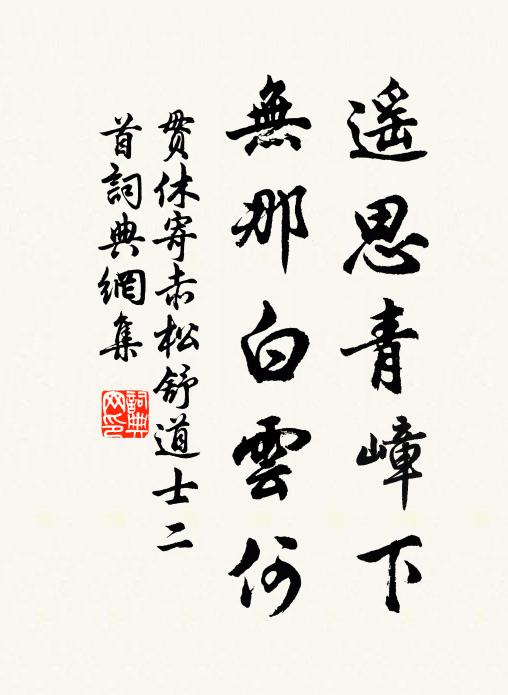 遥思青嶂下
無那白雲何
貫休寄赤松舒道士二
首詞典網集
詞典網印